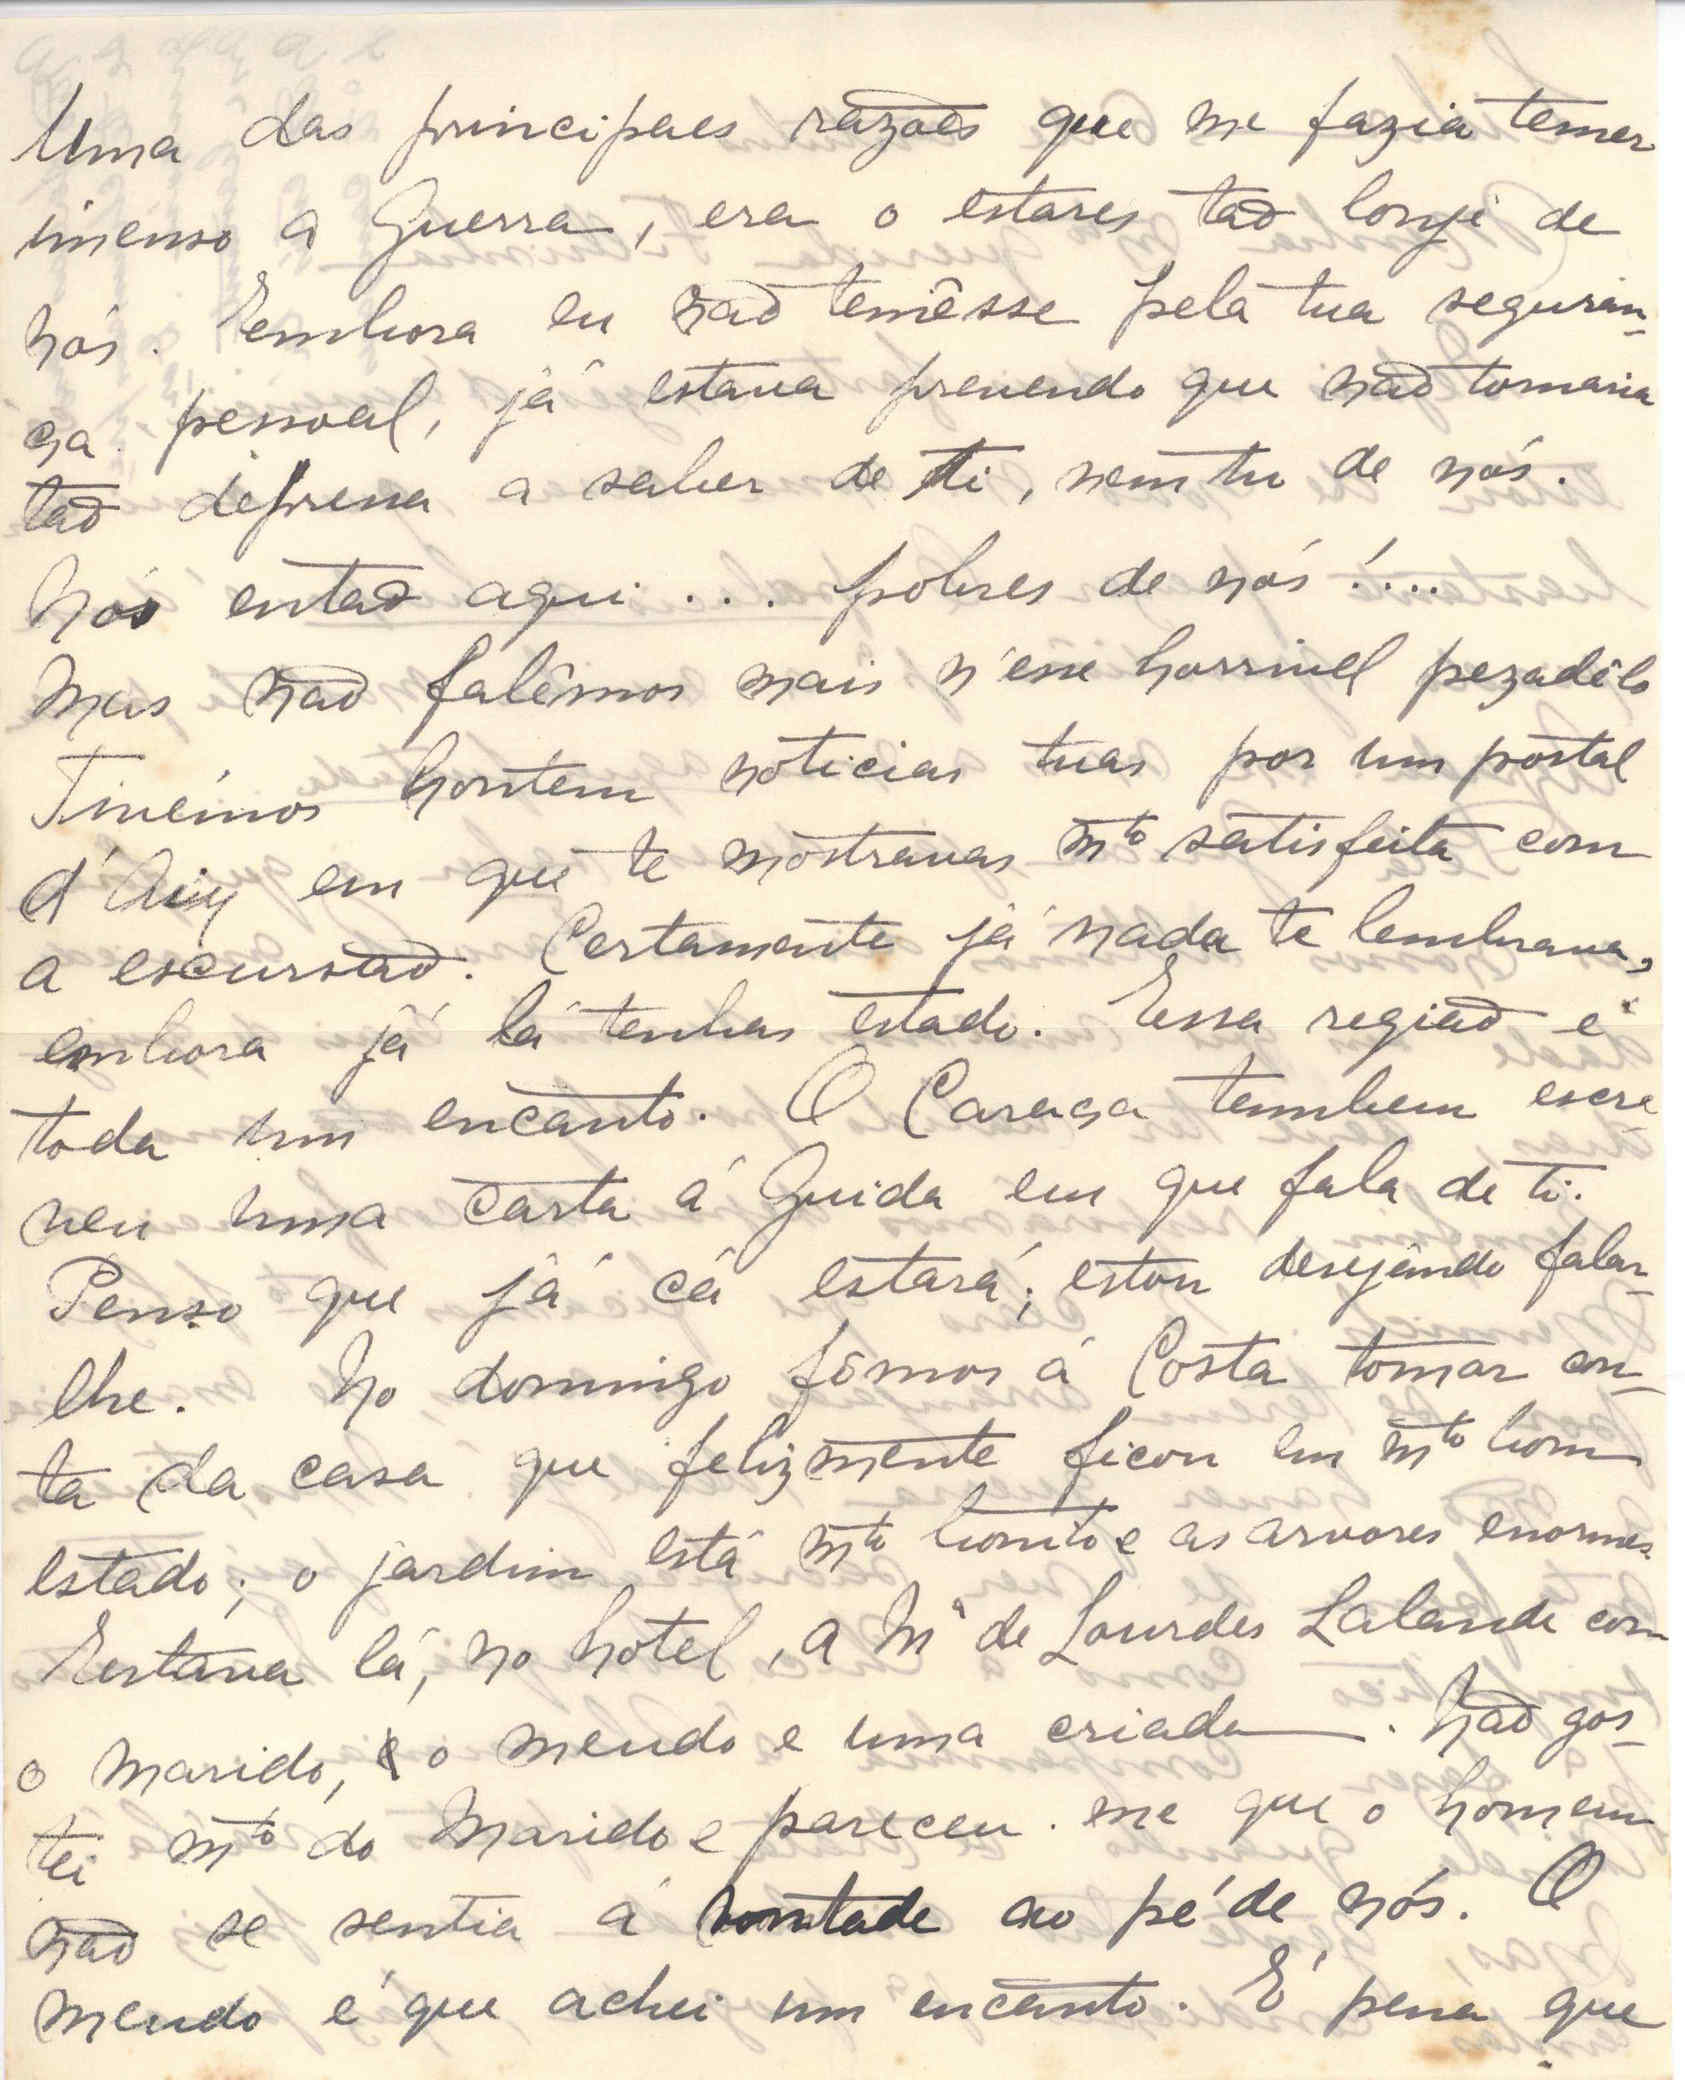 Uma das principaes razões que me fazia temer
imenso a Guerra, era o estares tão lonje de
nós. Embora eu não temêsse pela tua seguran-
ça pessoal, já estava prevendo que não tornaria
tão depressa a saber de ti, nem tu de nós.
Nós então aqui ... pobres de nós!....
Mas não falêmos mais n'esse horrivel pezadêlo
Tivémos hontem noticias tuas por um postal
d'Aix em que te mostravas mto satisfeita com
a escursão. Certamente já nada te lembrava,
embora já lá tenhas estado. Essa região é
toda um encanto. O Caraça tambem escre-
veu uma carta á Guida em que fala de ti.
Penso que já cá estará; estou desejando falar-
lhe. No domingo fômos á Costa tomar con-
ta da casa que felizmente ficou em mto bom
estado; o jardim está mto bonito e as arvores enormes.
Estava lá, no hotel, a Mª de Lourdes Lalande com
o marido, o mendo e uma criada. Não gos-
tei mto do marido e pareceu-me que o homem
não se sentia á vontade ao pé de nós. O
mendo é que achei um encanto. É pena que